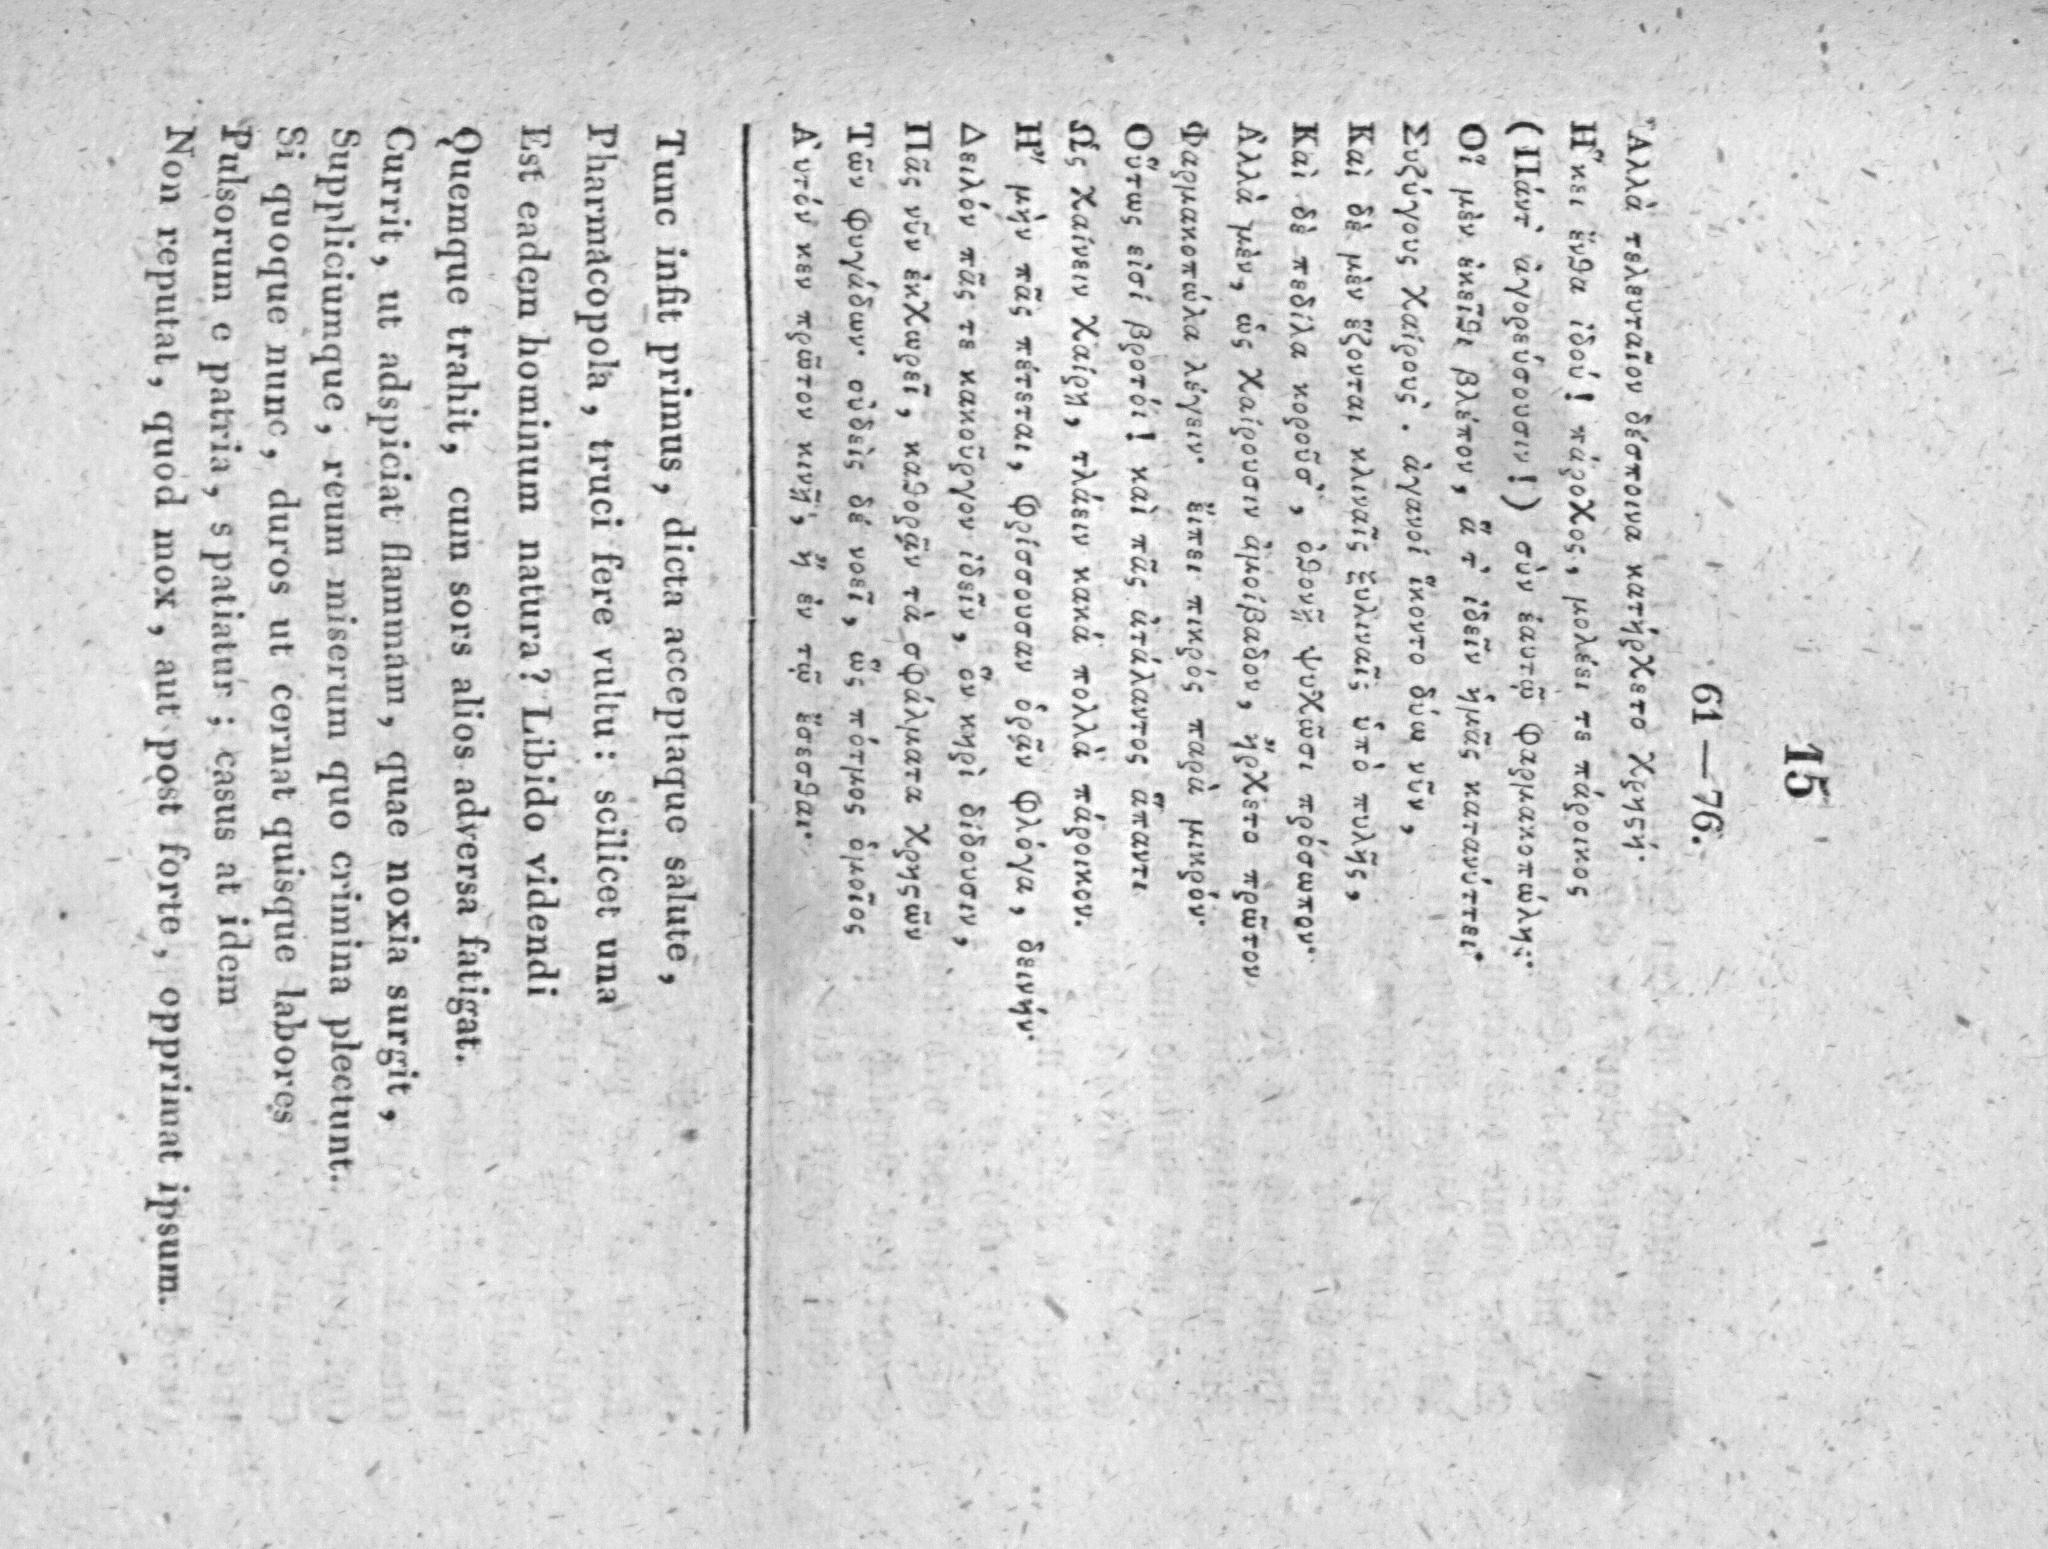 15
61—76.
Ἀλλὰ τελευταῖον δέσποινα κατήρχετο χρηςή·
Ἥκει ἔνθα ἰδού! πάροχος, μολέει τε πάροικος
(Πάντ' ἀγορεύσουσιν!) σὺν ἑαυτῷ φαρμακοπώλης·
Οἵ μὲν ἐκεῖθι βλέπον, ἅ τ' ἰδεῖν ἡμᾶς κατανύττει·
Συζύγους χαίρουὀ. ἀγανοί ἵκοντο δύω νῦν,
Καὶ δὲ μὲν ἕζονται κλιναῖς ξυλιναῖς ὑπὸ πυλῆς,
Καὶ δὲ πεδίλα κοροῦσ', ὀθονῇ ψυχῶσι πρόσωπον·
Ἀλλὰ μὲν, ὡς χαίρουσιν ἀμοίβαδον, ἤρχετο πρῶτον
Φαρμακοπώλα λέγειν· ἔιπει πικρός παρὰ μικρόν·
Οὕτως εἰσί βροτόι! καὶ πᾶς ἀτάλαντος ἅπαντι
Ὡς χαίνειν χαίρῃ, τλάειν κακά πολλὰ πάροικον.
Ἦ μὴν πᾶς πέτεται, φρίσσουσαν ὁρᾶν φλόγα, δεινήν·
Δειλόν πᾶς τε κακοῦργον ἰδεῖν, ὃν κηρὶ δίδουσιν,
Πᾶς νῦν ἐκχωρεῖ, καθορᾶν τὰ σφάλματα χρηςῶν
Τῶν φυγάδων· οὐδεὶς δέ νοεῖ, ὣς πότμος ὁμοῖος
Ἀυτόν κεν πρῶτον κινῇ, ἢ ἐν τῷ ἔσεσθαι·
Tunc infit primus, dicta acceptaque salute,
Pharmacopola, truci fere vultu: scilicet una
Est eadem hominum natura? Libido videndi
Quemque trahit, cum sors alios adversa fatigat.
Currit, ut adspiciat flammam, quae noxia surgit,
Suppliciumque, reum miserum quo crimina plectunt.
Si quoque nunc, duros ut cernat quisque labores
Pulsorum e patria, spatiatur; casus at idem
Non reputat, quod mox, aut post forte, opprimat ipsum.